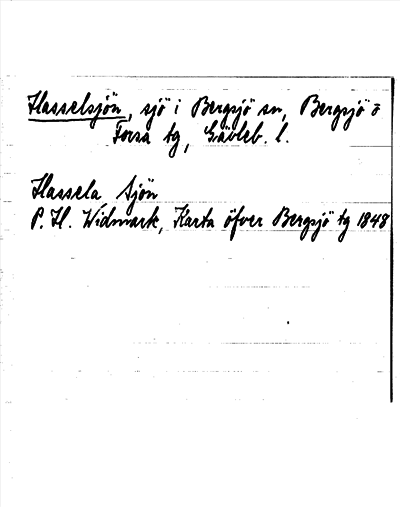 Hasselsjön, sjö i Bergsjö sn, Bergsjö o
Forsa tg, Gävleb. l.
Hassela Sjön
P. H. Widmark, Karta öfver Bergsjö tg 1848